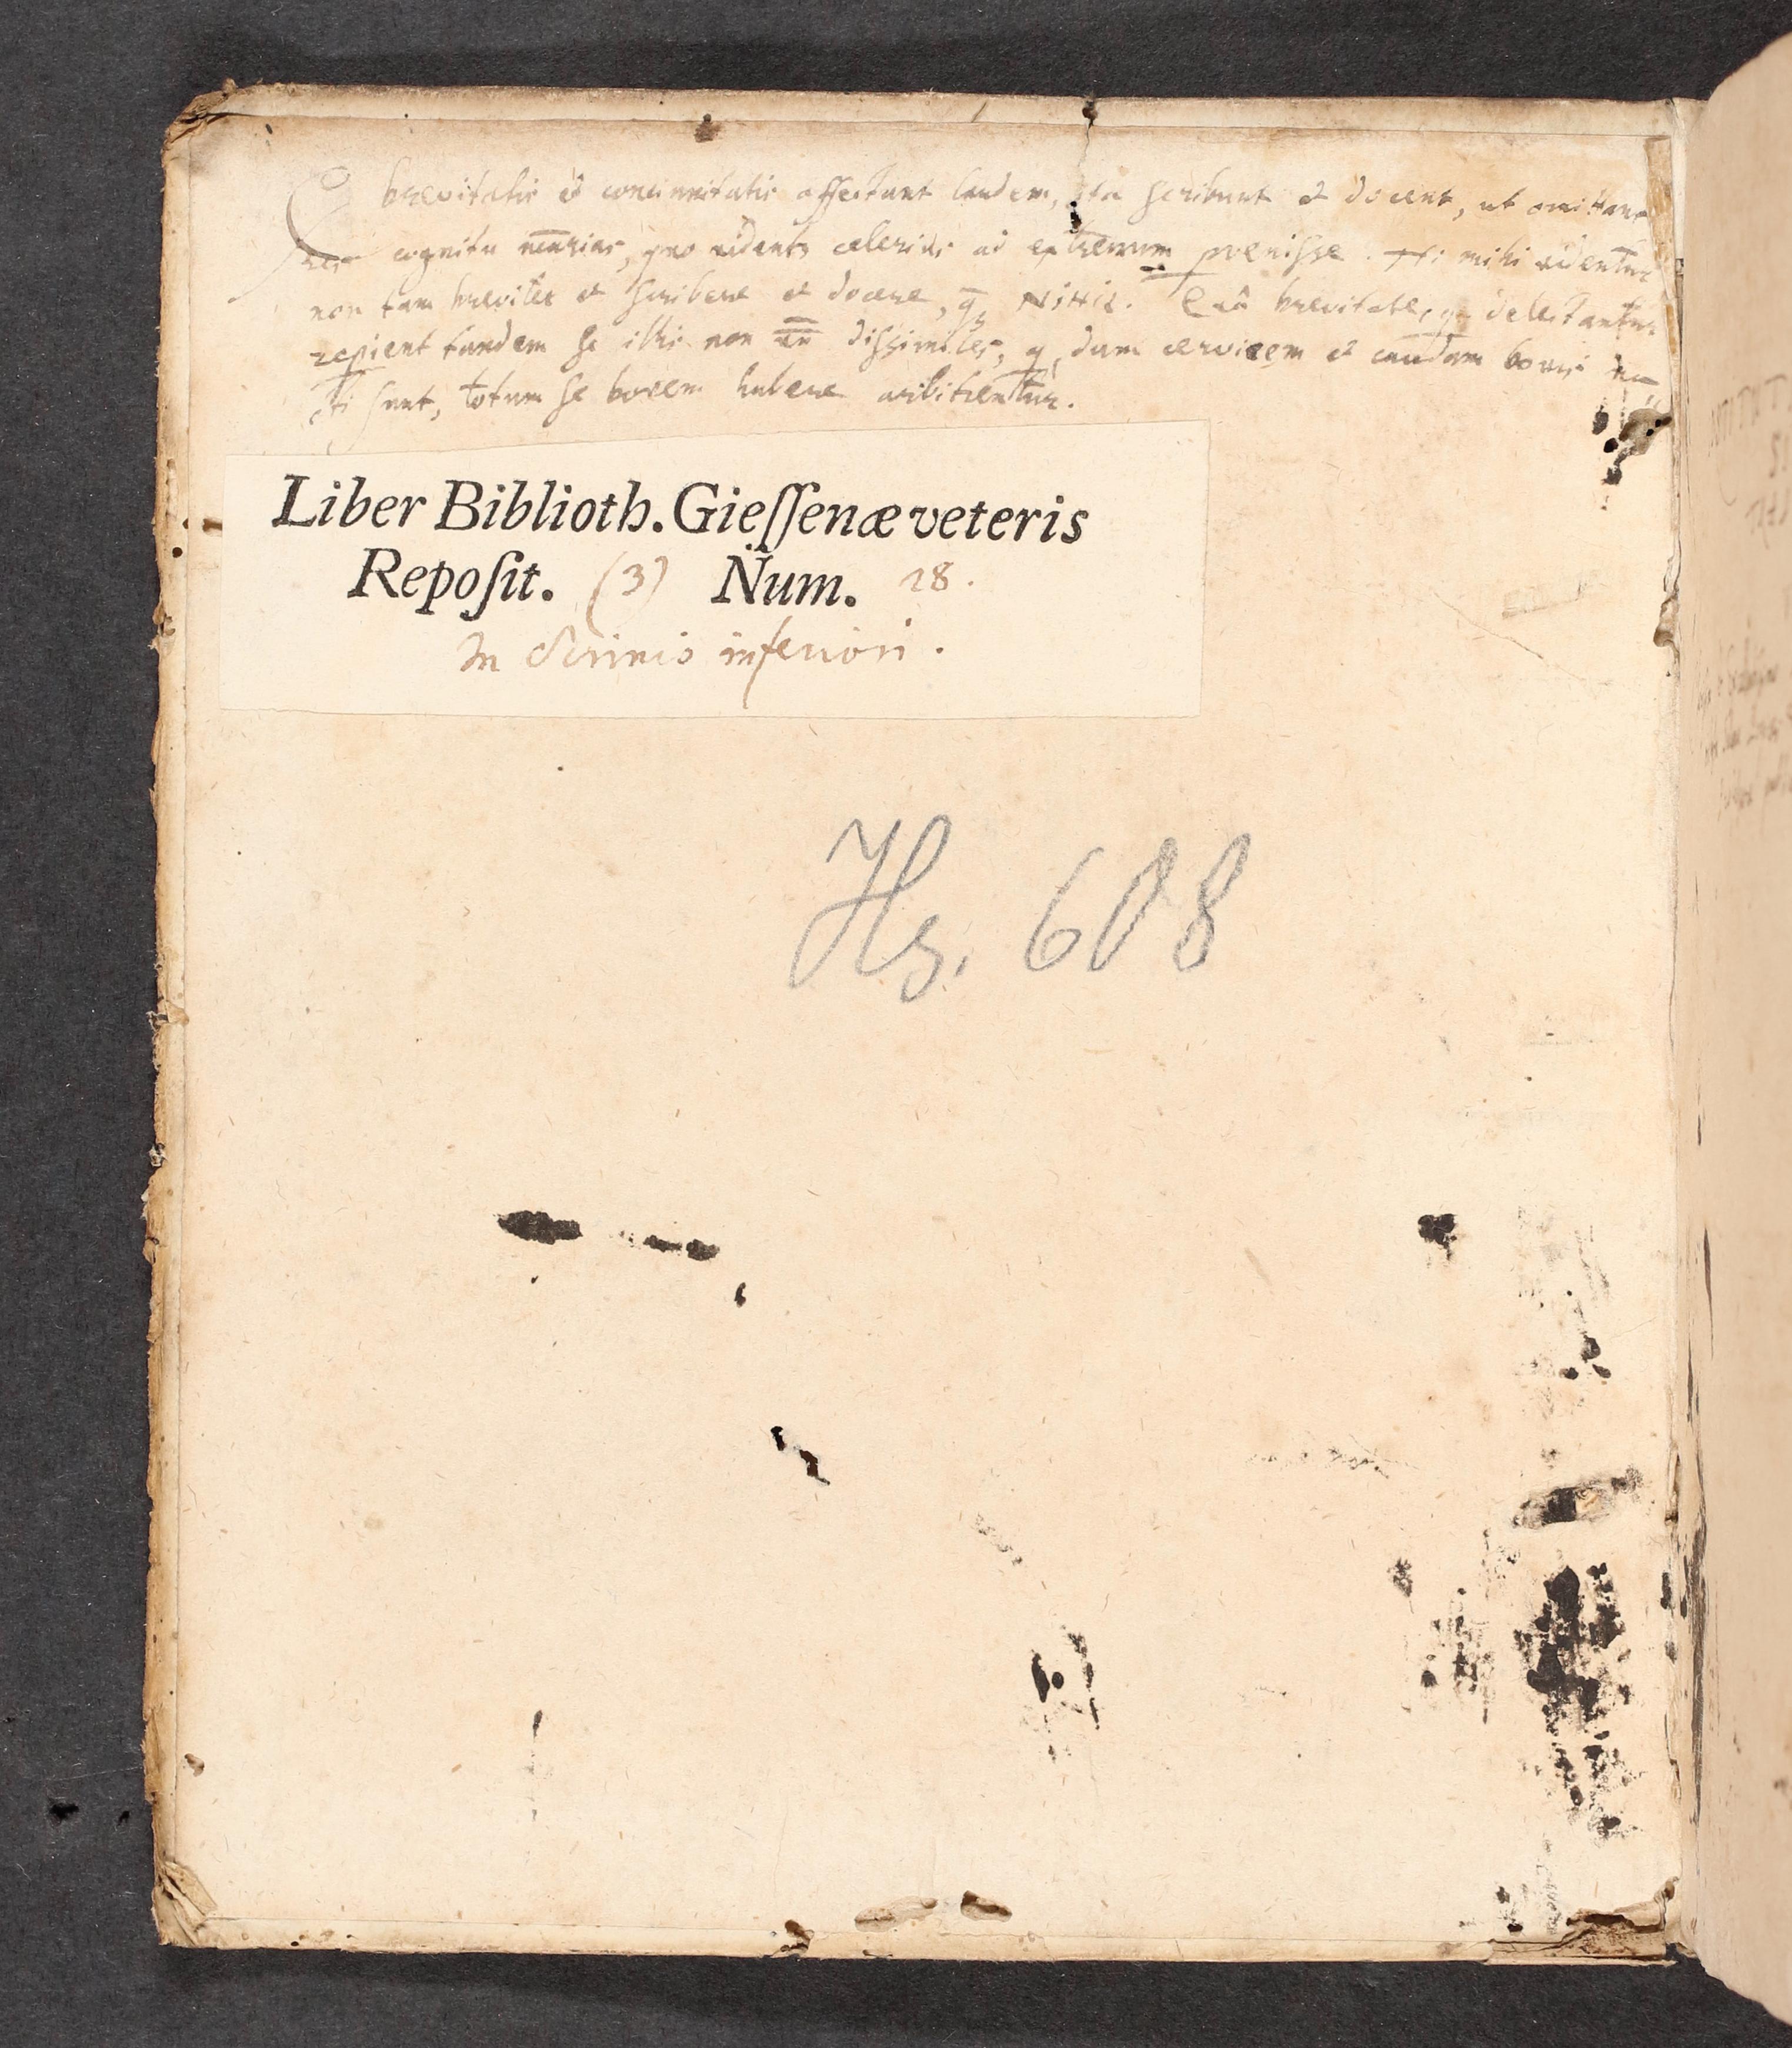 brevitatis et concinnitatis affectant laudem, ita scribunt et docent, ut omittant
res cognitu nec̄arias, quo videant͛ celeriùs ad extremum pvenisse. Hi mihi videntur
non tam breviter et scribere et docere, q̄, NIHIL. Quâ brevitate, q delectantur
repient tandem se illis non dissimiles, q, dum cervicem et caudam bovis na-
cti sunt, totum se bovem habere arbitrentur.
Liber Biblioth. Gieſſenæ veteris
Repoſit. (3) Num. 28.
In Scrinio inferiori.
Hs. 608